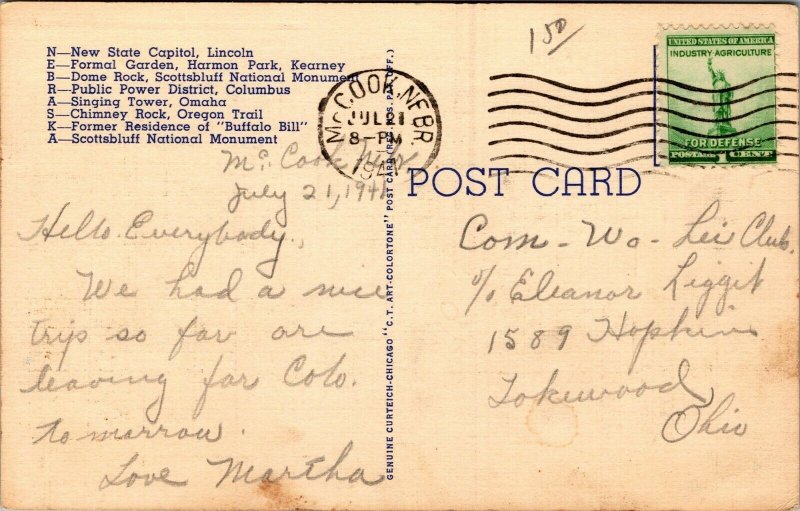 N—New State Capitol, Lincoln
E—Formal Garden, Harmon Park, Kearney
B—Dome Rock, Scottsbluff National Monument
R—Public Power District, Columbus
A—Singing Tower, Omaha
S—Chimney Rock, Oregon Trail
K—Former Residence of "Buffalo Bill"
A—Scottsbluff National Monument
McCook, Nebr.
July 21, 1941
Hello Everybody,
We had a nice
trip so far are
leaving for Colo.
tomorrow.
Love Martha
GENUINE CURTEICH-CHICAGO "C.T. ART-COLORTONE" POST CARD (REG. U.S. PAT. OFF.)
McCOOK, NEBR.
JUL 21
8-PM
1941
150
UNITED STATES OF AMERICA
INDUSTRY AGRICULTURE
FOR DEFENSE
POSTAGE 1 CENT
POST CARD
Com-Wo-Lei Club.
c/o Eleanor Liggit
1589 Hopkins
Lakewood,
Ohio